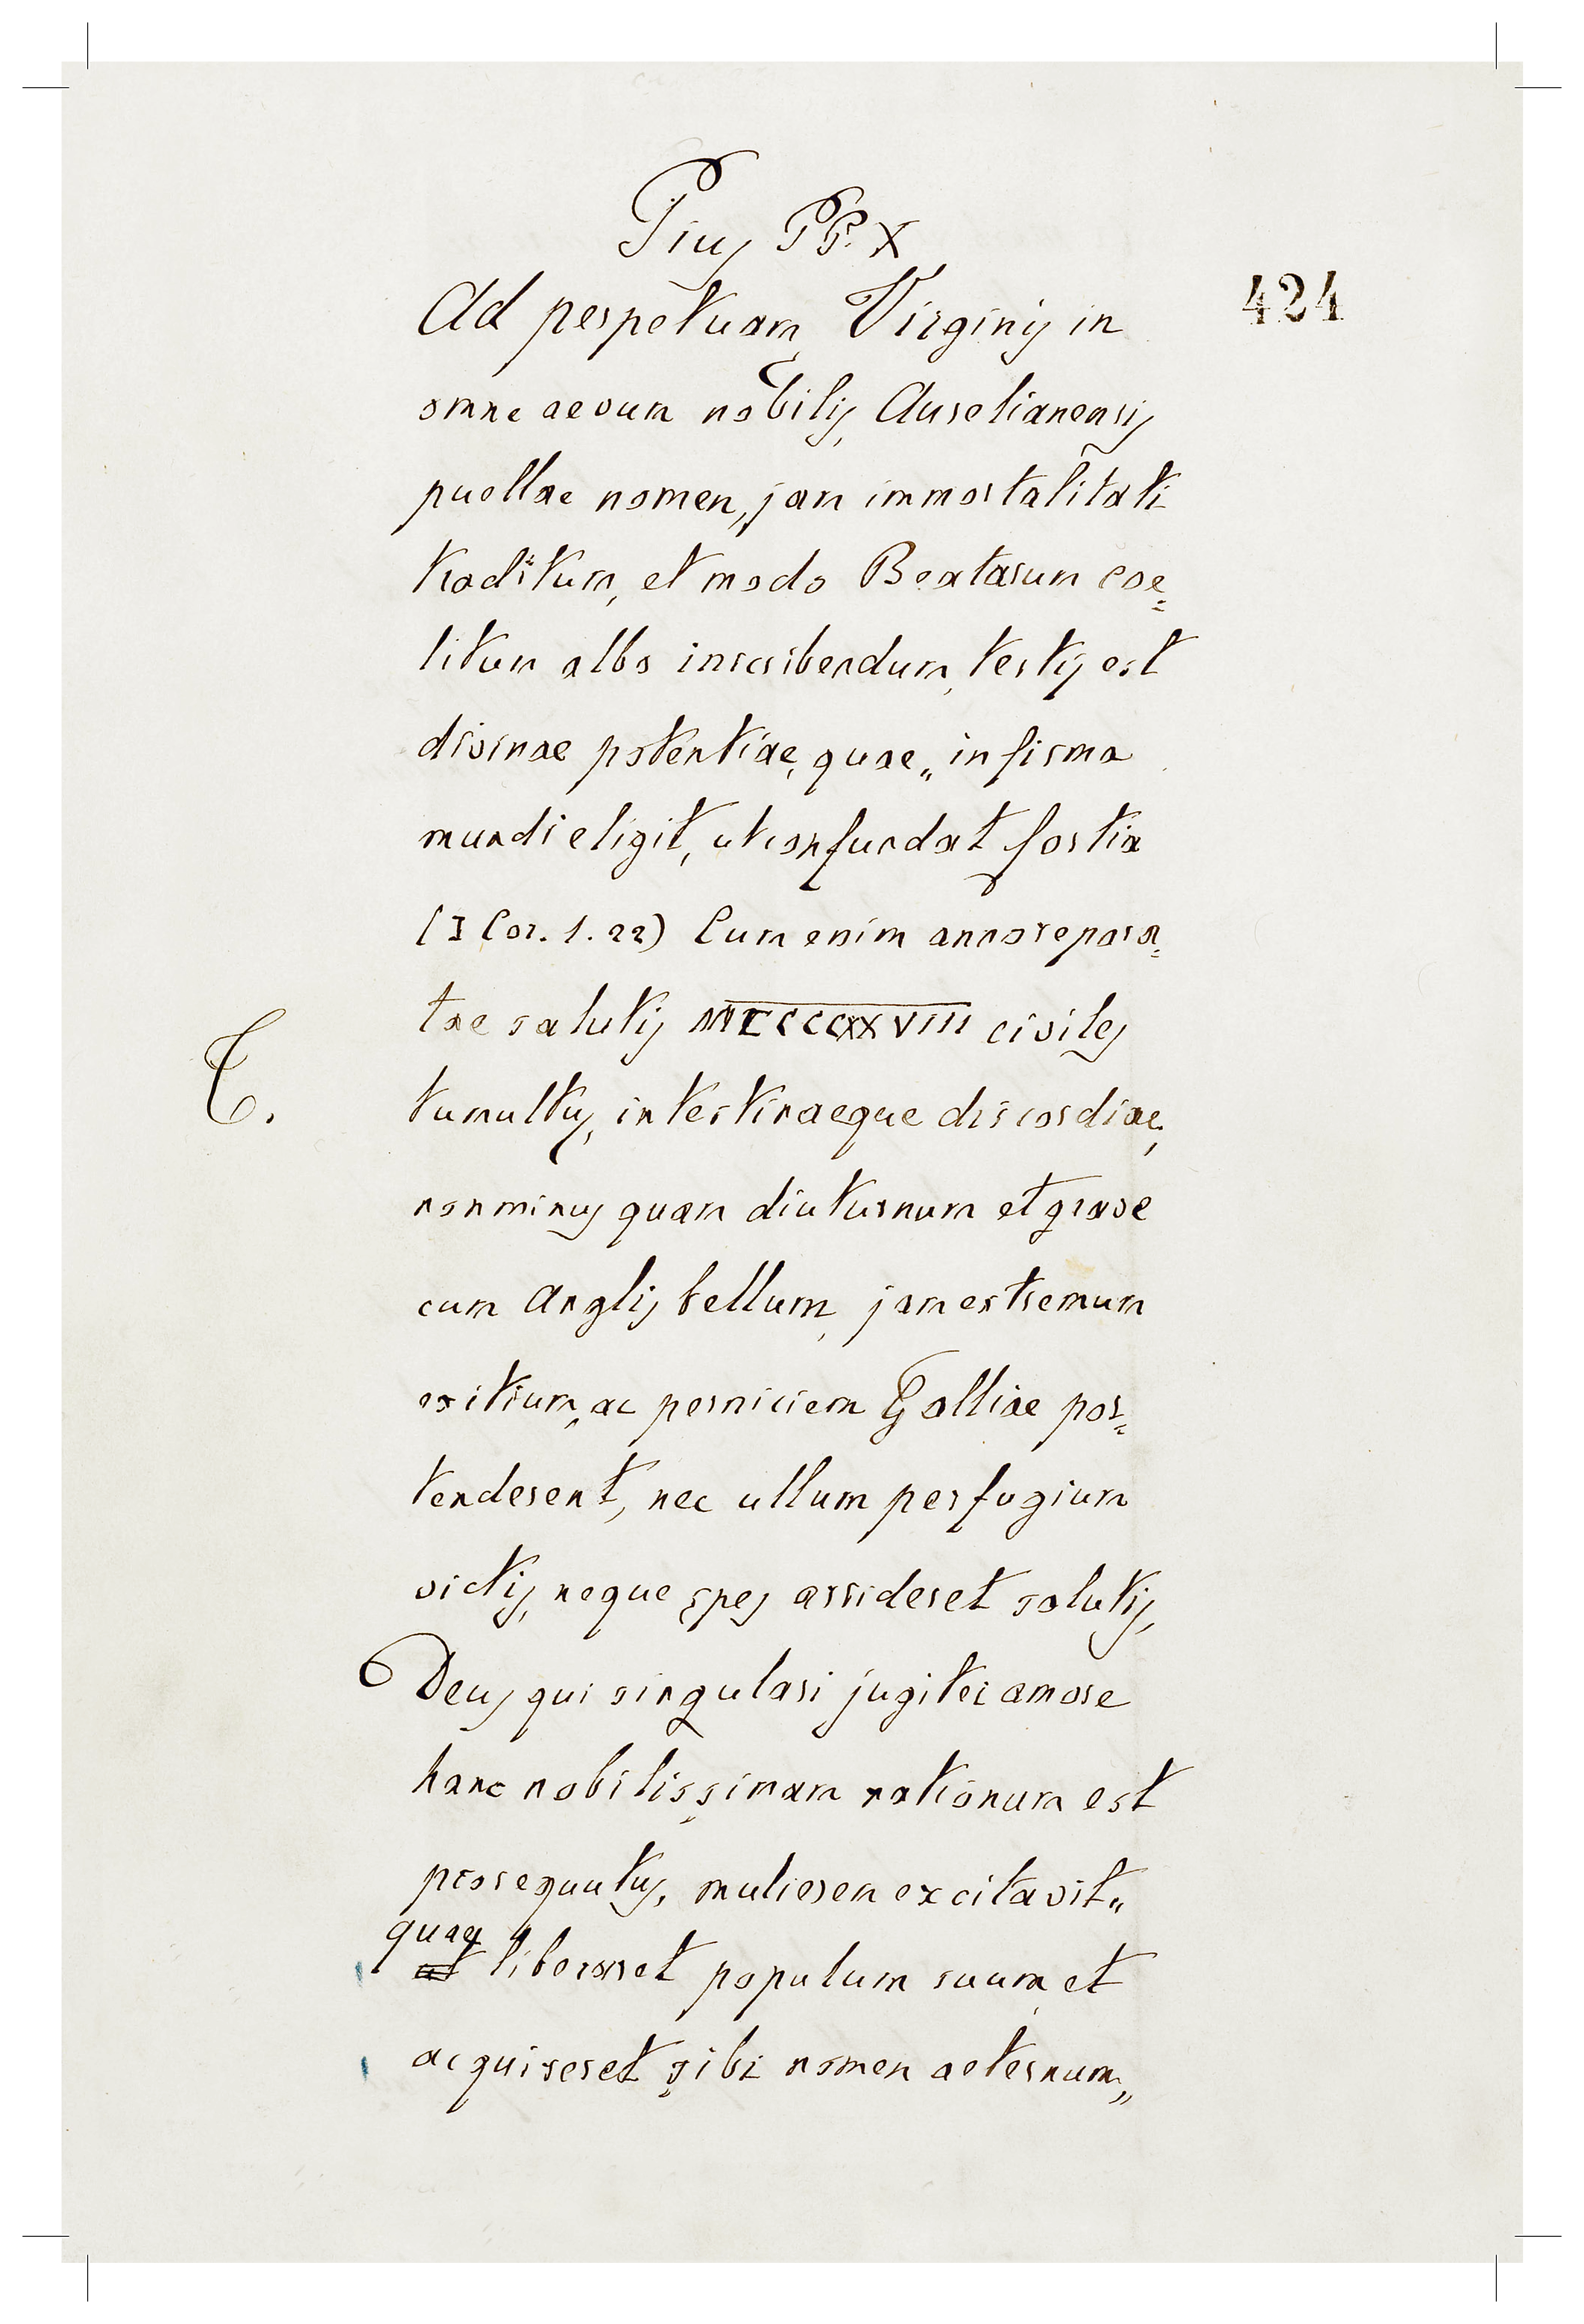 Pius PP. X
424
Ad perpetuam Virginis in
omne aevum nobilis Aurelianensis
puellae nomen, jam immortalitati
traditum, et modo Beatarum coe=
litum albo inscribendum, testis est
divinae potentiae, quae „ infirma
mundi eligit, ut confundat fortia
(I Cor. 1. 22) Cum enim anno repara=
tae salutis MCCCCXXVIII civiles
T.
tumultus, intestinaeque discordiae,
non minus quam diuturnum et grave
cum Anglis bellum, jam extremum
exitium, ac perniciem Galliae por=
tenderent, nec ullum perfugium
victis, neque spes arrideret salutis,
Deus qui singulari jugiter amore
hanc nobilissimam nationum est
prosequutus, mulierem excitavit „
quae
ut liberaret populum suum, et
acquireret sibi nomen aeternum „